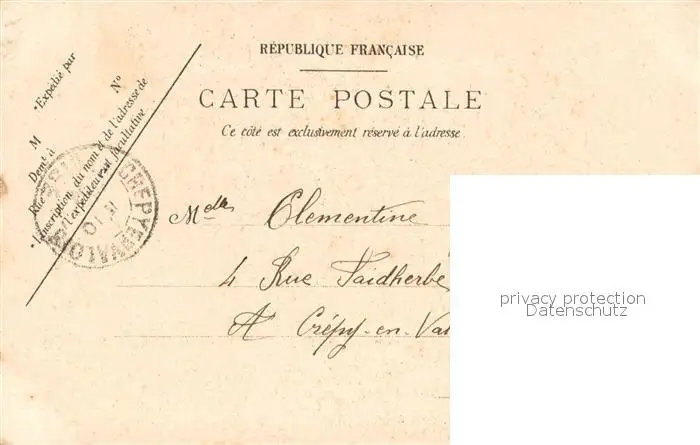 RÉPUBLIQUE FRANÇAISE
CARTE POSTALE
Ce côté est exclusivement réservé à l'adresse
*Expédié par
M N°
Dem.t à
Rue
*L'inscription du nom et de l'adresse de
l'expéditeur est facultative
CREPY-EN-VALOIS
Mdlle Clementine
4 Rue Faidherbe
A Crépy-en-Va
privacy protection
Datenschutz